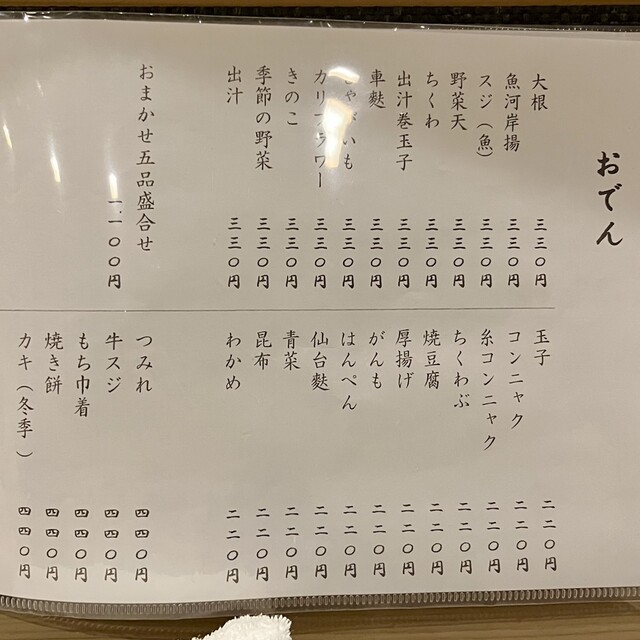 おでん
大根 三三〇円
魚河岸揚 三三〇円
スジ（魚） 三三〇円
野菜天 三三〇円
ちくわ 三三〇円
出汁巻玉子 三三〇円
車麩 三三〇円
じゃがいも 三三〇円
カリフラワー 三三〇円
きのこ 三三〇円
季節の野菜 三三〇円
出汁 三三〇円
おまかせ五品盛合せ 一、一〇〇円
玉子 二二〇円
コンニャク 二二〇円
糸コンニャク 二二〇円
ちくわぶ 二二〇円
焼豆腐 二二〇円
厚揚げ 二二〇円
がんも 二二〇円
はんぺん 二二〇円
仙台麩 二二〇円
青菜 二二〇円
昆布 二二〇円
わかめ 二二〇円
つみれ 四四〇円
牛スジ 四四〇円
もち巾着 四四〇円
焼き餅 四四〇円
カキ（冬季） 四四〇円